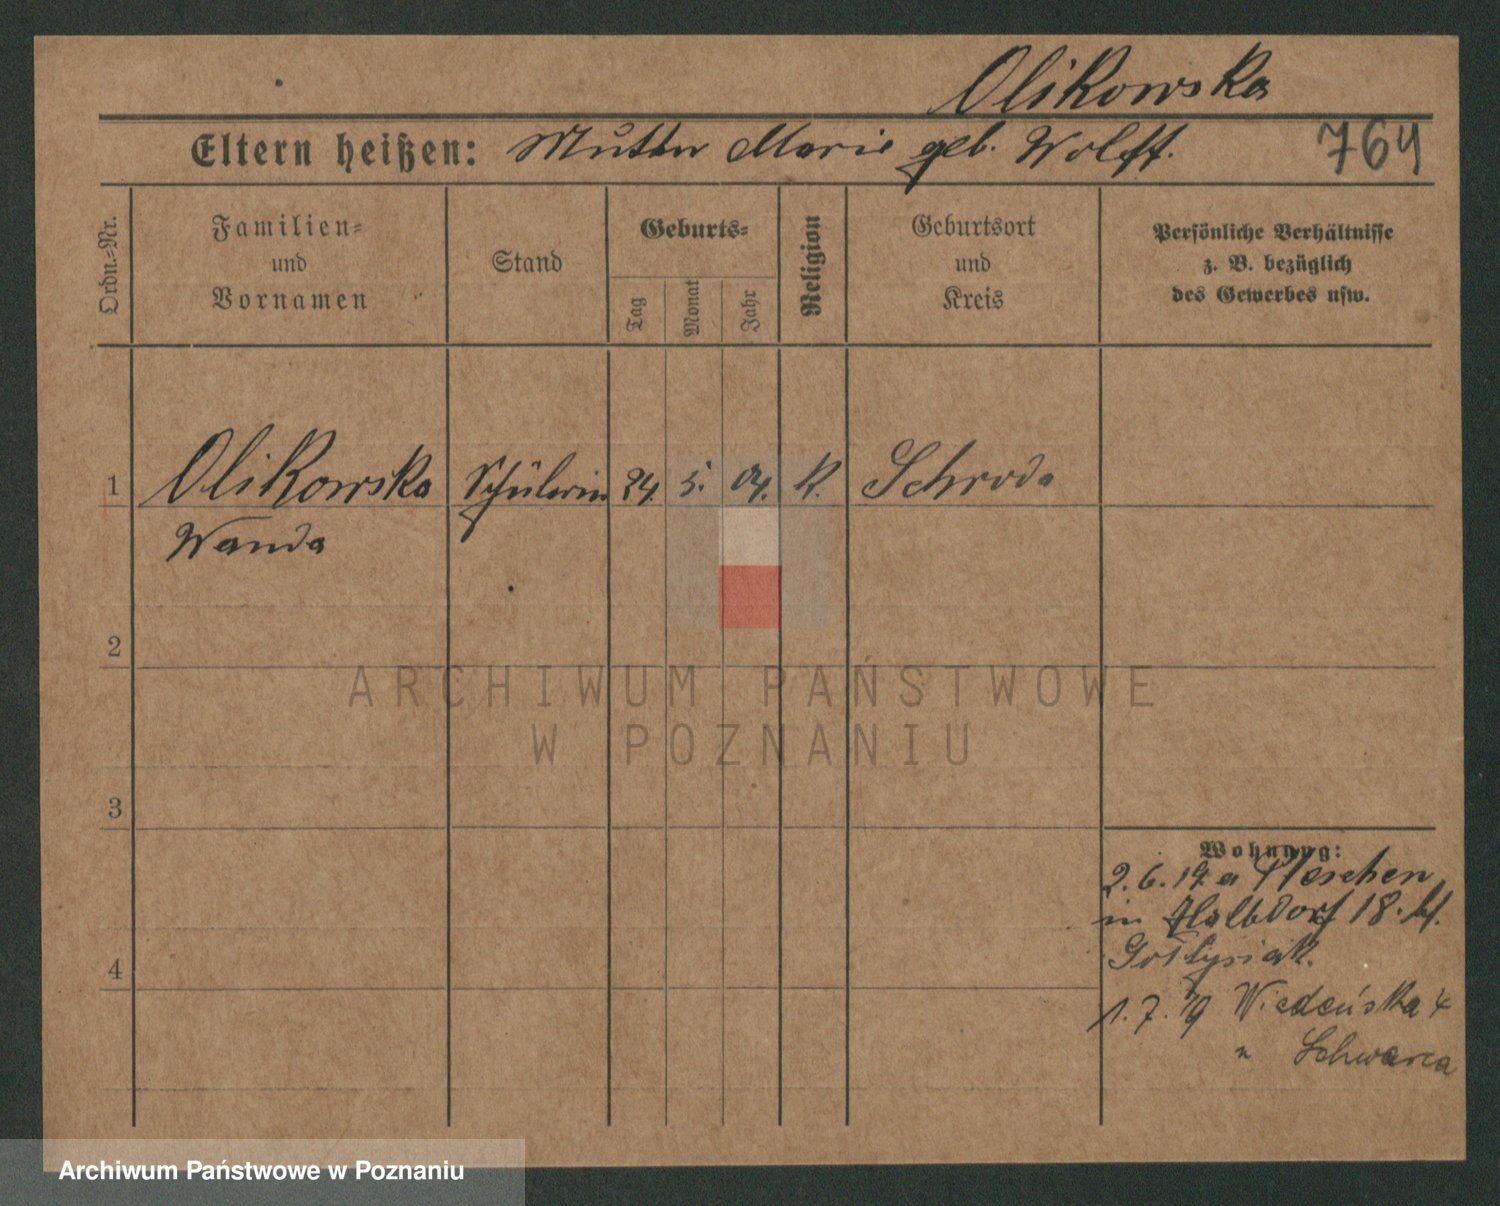 Olikowska
Eltern heißen: Mutter Marie geb. Wolff.
764
Ordn.-Nr.
Familien-
und
Vornamen
Stand
Geburts-
Tag
Monat
Jahr
Religion
Geburtsort
und
Kreis
Persönliche Verhältnisse
z. B. bezüglich
des Gewerbes usw.
1 Olikowska Schülerin 24. 5. 04. K. Schroda
Wanda
2
3
4
Wohnung:
2.6.19. a Pleschen
in Halbdorf 18. bf.
1.7.19 Wiedeńska 4
u Schwarca
ARCHIWUM PAŃSTWOWE
W POZNANIU
Archiwum Państwowe w Poznaniu